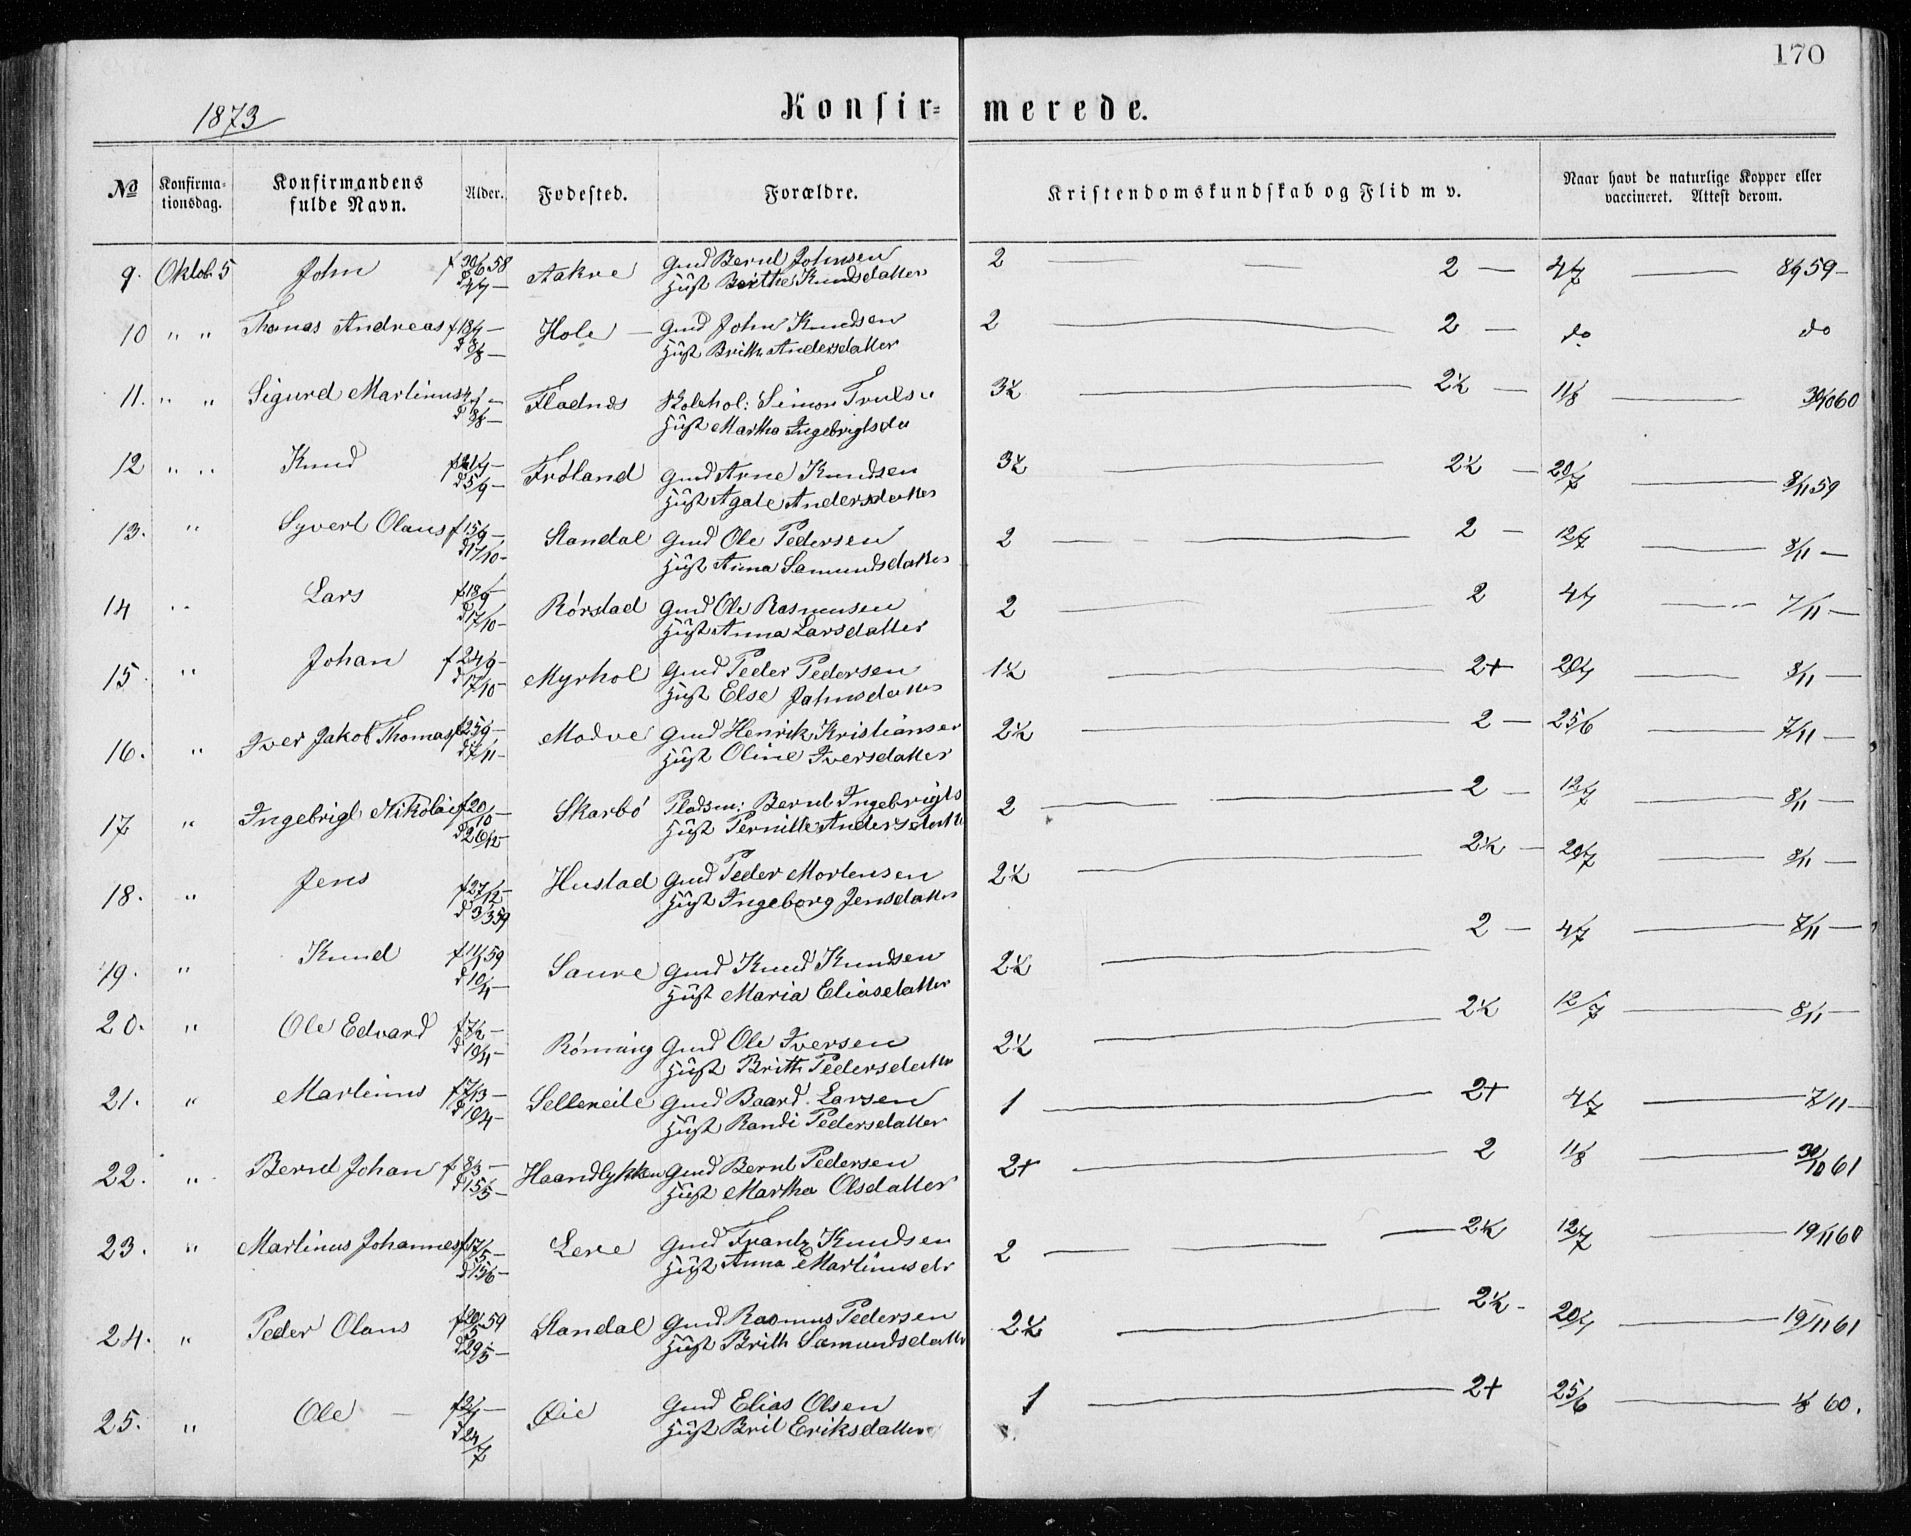 170
1873
Konfir= merede.
No Konfirma=tionsdag. Konfirmandens fulde Navn. Alder. Fodested. Forældre. Kristendomskundskab og Flid m v. Naar havt de naturlige Kopper eller vaccineret. Attest derom.
9. Oktob. 5 John f 30/6 58 Aakre Gmd Bernt Johnsen 2 — 2 — 4/7 — 59 —
Hust Birthe Knudsdatter
10 " " Thomas Andreas Hole — Gmd John Knudsen 2 — 2 — do do
d 8/8 — Hust Brith Andersdatter
11. " " Sigurd Martinus Fladnes Skolehol: Simon Truls 3½ — 2½ — 11/8 — 60
Hust Martha Ingebrigtsda
12 " " Knud Fróland Gmd Arne Knudsen 3½ — 2½ — 20/7 — 8/11 59
d 5/9 — Hust Agate Andersdatter
13. " Syvert Olaus f 15/9 — Standal Gmd Ole Pedersen 2 — 2 — 12/7 — 8/11 —
d 17/10 — Hust Anna Samundsdatter
14 " Lars f 18/9 — Rórstad Gmd Ole Rasmusen 2 — 2 4/7 — 7/11 —
d 17/10 — Hust Anna Larsdatter
15 " Johan f 24/9 — Myrhol Gmd Peder Pedersen 1½ — 2+ 20/7 — 8/11 —
d 17/10 — Hust Else Jahnsdatter
16. " Iver Jakob Thomas f 25/9 — Modve Gmd Henrik Kristiansen 2½ — 2 — 25/6 — 7/11 —
d 7/11 — Hust Oline Iversdatter
17 " Ingebrigt Nikolai f 20/10 — Skarbó Pladsm: Bernt Ingebrigts 2 — 2 — 12/7 — 8/11 —
d 26/12 — Hust Pernille Andersdatt
18. " Jens f 27/12 — Hustad Gmd Peder Mortensen 2½ — 2½ — 20/7 — 8/11 —
d 3/3 59 Hust Ingeborg Jensdatter
19. " Knud f 11/1 59 Saure Gmd Knud Knudsen 2½ — 2 — 4/7 — 7/11 —
d 10/4 — Hust Maria Eliasdatter
20. " Ole Edvard f 7/2 — Rómúig Gmd Ole Iversen 2½ — 2½ 12/7 — 8/11 —
d 10/4 — Hust Brith Pedersdatter
21. " Martinus f 7/3 — Selleneile Gmd Baard Larsen 1 — 2+ 4/7 — 7/11 —
d 10/4 — Hust Randi Pedersdatter
22. " Bernt Johan f 8/3 — Haandlykken Gmd Bernt Pedersen 2+ — 2 11/8 — 30/10 61
d 15/5 — Hust Martha Olsdatter
23. " Martinus Johannes f 17/5 — Lere Gmd Frantz Knudsen 2 — 2½ 12/7 — 19/11 60
d 15/6 — Hust Anna Martinusdr
24. " Peder Olaus f 20/5 59 Standal Gmd Rasmus Pedersen 2½ — 2½ - 20/7 — 19/11 61
d 29/5 — Hust Brith Samundsdatter
25. " Ole — Øie Gmd Elias Olsen 1 — 2+ 25/6 — 60.
d 24/7 Hust Brit Eriksdatter